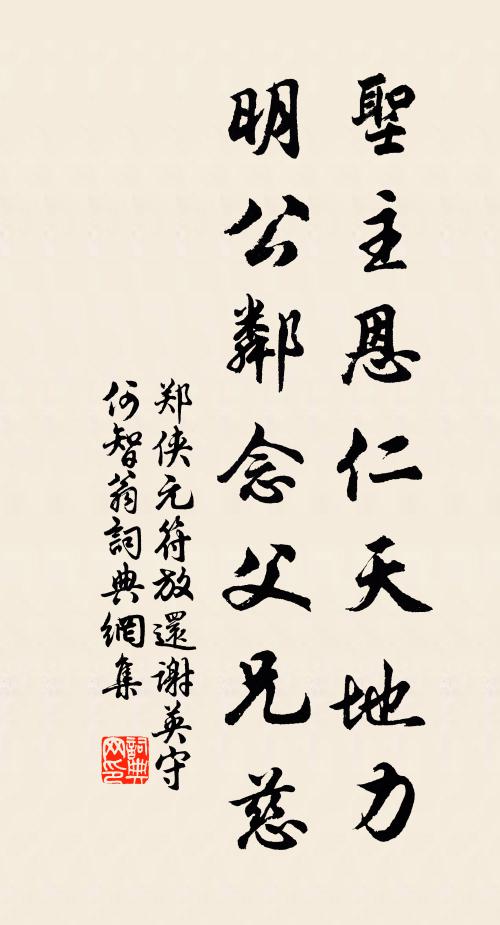 聖主恩仁天地力
明公鄰念父兄慈
郑侠元符放還谢英守
何智翁詞典網集
詞典网印